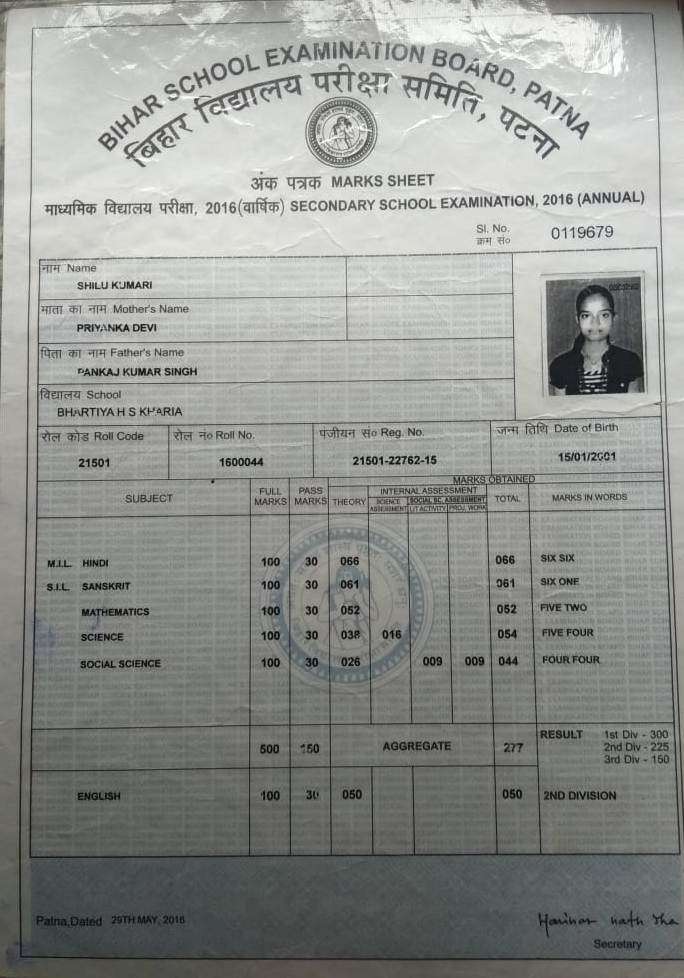 BIHAR SCHOOL EXAMINATION BOARD, PATNA
बिहार विद्यालय परीक्षा समिति, पटना
अंक पत्रक MARKS SHEET
माध्यमिक विद्यालय परीक्षा, 2016(वार्षिक) SECONDARY SCHOOL EXAMINATION, 2016 (ANNUAL)
Sl. No.
क्रम सं० 0119679
नाम Name
SHILU KUMARI
माता का नाम Mother's Name
PRIYANKA DEVI
पिता का नाम Father's Name
PANKAJ KUMAR SINGH
विद्यालय School
BHARTIYA H S KHARIA
रोल कोड Roll Code रोल नं० Roll No. पंजीयन सं० Reg. No. जन्म तिथि Date of Birth
21501 1600044 21501-22762-15 15/01/2001
MARKS OBTAINED
SUBJECT FULL MARKS PASS MARKS THEORY INTERNAL ASSESSMENT TOTAL MARKS IN WORDS
SCIENCE ASSESSMENT SOCIAL SC. ASSESSMENT
LIT ACTIVITY PROJ. WORK
M.I.L. HINDI 100 30 066 066 SIX SIX
S.I.L. SANSKRIT 100 30 061 061 SIX ONE
MATHEMATICS 100 30 052 052 FIVE TWO
SCIENCE 100 30 038 016 054 FIVE FOUR
SOCIAL SCIENCE 100 30 026 009 009 044 FOUR FOUR
500 150 AGGREGATE 277 RESULT 1st Div - 300
2nd Div - 225
3rd Div - 150
ENGLISH 100 30 050 050 2ND DIVISION
Patna,Dated 29TH MAY, 2016
Harihar nath Jha
Secretary